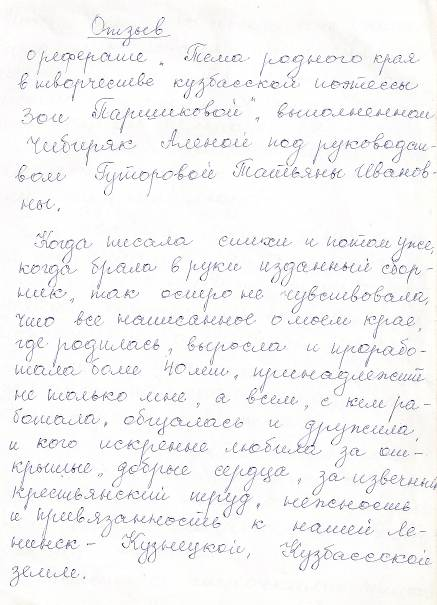 Отзыв
о реферате „Тема родного края
в творчестве кузбасской поэтессы
Зои Паршиковой", выполненном
Чебчеряк Аленой под руководст-
вом Гуторовой Татьяны Иванов-
ны.
Когда писала стихи и потом уже,
когда брала в руки изданный сбор-
ник, так остро не чувствовала,
что все написанное о моем крае,
где родилась, выросла и прорабо-
тала более 40 лет, принадлежит
не только мне, а всем, с кем ра-
ботала, общалась и дружила,
и кого искренне любила за от-
крытые, добрые сердца, за извечный
крестьянский труд, нежность
и привязанность к нашей Ле-
нинск-Кузнецкой, Кузбассской
земле.